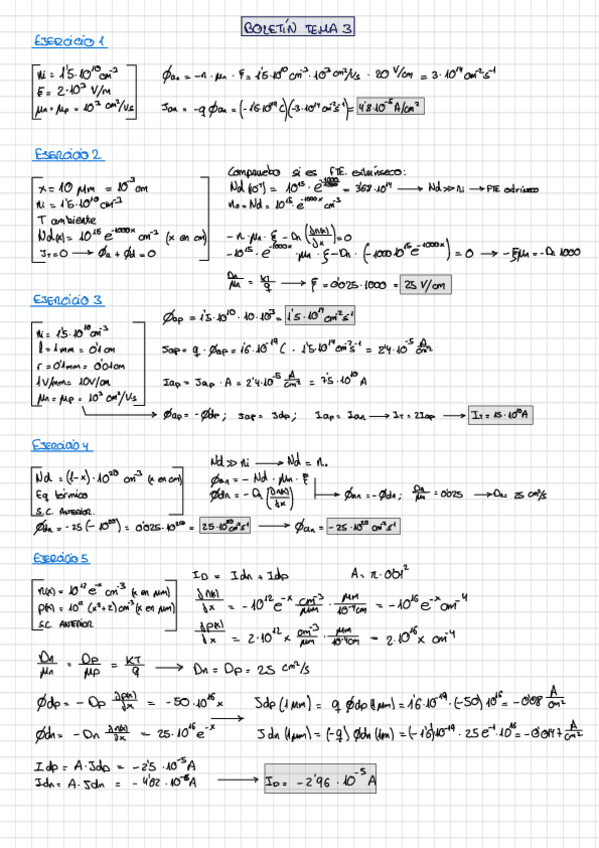 BOLETÍN TEMA 3
EJERCICIO 1
ni = 1'5·10¹⁰ cm⁻³
ξ = 2·10³ V/m
μn = μp = 10³ cm²/Vs
Φan = -n·μn·ξ = 1'5·10¹⁰ cm⁻³·10³ cm²/Vs · 20 V/cm = 3·10¹⁴ cm⁻²s⁻¹
Jan = -q Φan = (-1'6·10⁻¹⁹ C)(-3·10¹⁴ cm⁻²s⁻¹) = 4'8·10⁻⁵ A/cm²
EJERCICIO 2
x = 10 μm = 10⁻³ cm
ni = 1'5·10¹⁰ cm⁻³
T ambiente
Nd(x) = 10¹⁵ e^(-1000x) cm⁻³ (x en cm)
JT = 0 → Φa + Φd = 0
Compruebo si es FTE. extrínseco:
Nd(10⁻³) = 10¹⁵·e^(-1000·10⁻³) = 3'68·10¹⁴ → Nd ≫ ni → FTE extrínseco
no = Nd = 10¹⁵·e^(-1000x) cm⁻³
-n·μn·ξ - Dn (dn(x)/dx) = 0
-10¹⁵·e^(-1000x)·μn·ξ - Dn·(-1000·10¹⁵e^(-1000x)) = 0 → -ξμn = -Dn 1000
Dn/μn = KT/q → ξ = 0'025·1000 = 25 V/cm
EJERCICIO 3
ni = 1'5·10¹⁰ cm⁻³
l = 1mm = 0'1cm
r = 0'1mm = 0'01cm
1V/mm = 10V/cm
μn = μp = 10³ cm²/Vs
Φap = 1'5·10¹⁰·10·10³ = 1'5·10¹⁴ cm⁻²s⁻¹
Jap = q·Φap = 1'6·10⁻¹⁹ C · 1'5·10¹⁴ cm⁻²s⁻¹ = 2'4·10⁻⁵ A/cm²
Iap = Jap·A = 2'4·10⁻⁵ A/cm² = 7'5·10⁻¹⁰ A
Φap = -Φdp; Jap = Jdp; Iap = Ian → IT = 2Iap → IT = 15·10⁻¹⁰ A
EJERCICIO 4
Nd = (1-x)·10²⁰ cm⁻³ (x en cm)
Eq térmico
S.C. ANTERIOR.
Nd ≫ ni → Nd = no
Φan = -Nd·μn·ξ
Φdn = -Dn (dn(x)/dx)
Φan = -Φdn; Dn/μn = 0'025 → Dn = 25 cm²/s
Φdn = -25(-10²⁰) = 0'025·10²⁰ = 25·10²⁰ cm⁻²s⁻¹ → Φan = -25·10²⁰ cm⁻²s⁻¹
EJERCICIO 5
n(x) = 10¹² e⁻ˣ cm⁻³ (x en μm)
p(x) = 10¹² (x²+2) cm⁻³ (x en μm)
S.C. ANTERIOR
ID = Idn + Idp A = π·0'01²
dn(x)/dx = -10¹² e⁻ˣ cm⁻³/μm · μm/10⁻⁴cm = -10¹⁶ e⁻ˣ cm⁻⁴
dp(x)/dx = 2·10¹² x cm⁻³/μm · μm/10⁻⁴cm = 2·10¹⁶ x cm⁻⁴
Dn/μn = Dp/μp = KT/q → Dn = Dp = 25 cm²/s
Φdp = -Dp dp(x)/dx = -50·10¹⁶ x
Jdp(1μm) = q Φdp(1μm) = 1'6·10⁻¹⁹·(-50)·10¹⁶ = -0'08 A/cm²
Φdn = -Dn dn(x)/dx = 25·10¹⁶ e⁻ˣ
Jdn(1μm) = (-q) Φdn(1μm) = (-1'6)10⁻¹⁹·25e⁻¹·10¹⁶ = -0'0147 A/cm²
Idp = A·Jdp = -2'5·10⁻⁵ A
Idn = A·Jdn = -4'62·10⁻⁶ A
ID = -2'96·10⁻⁵ A